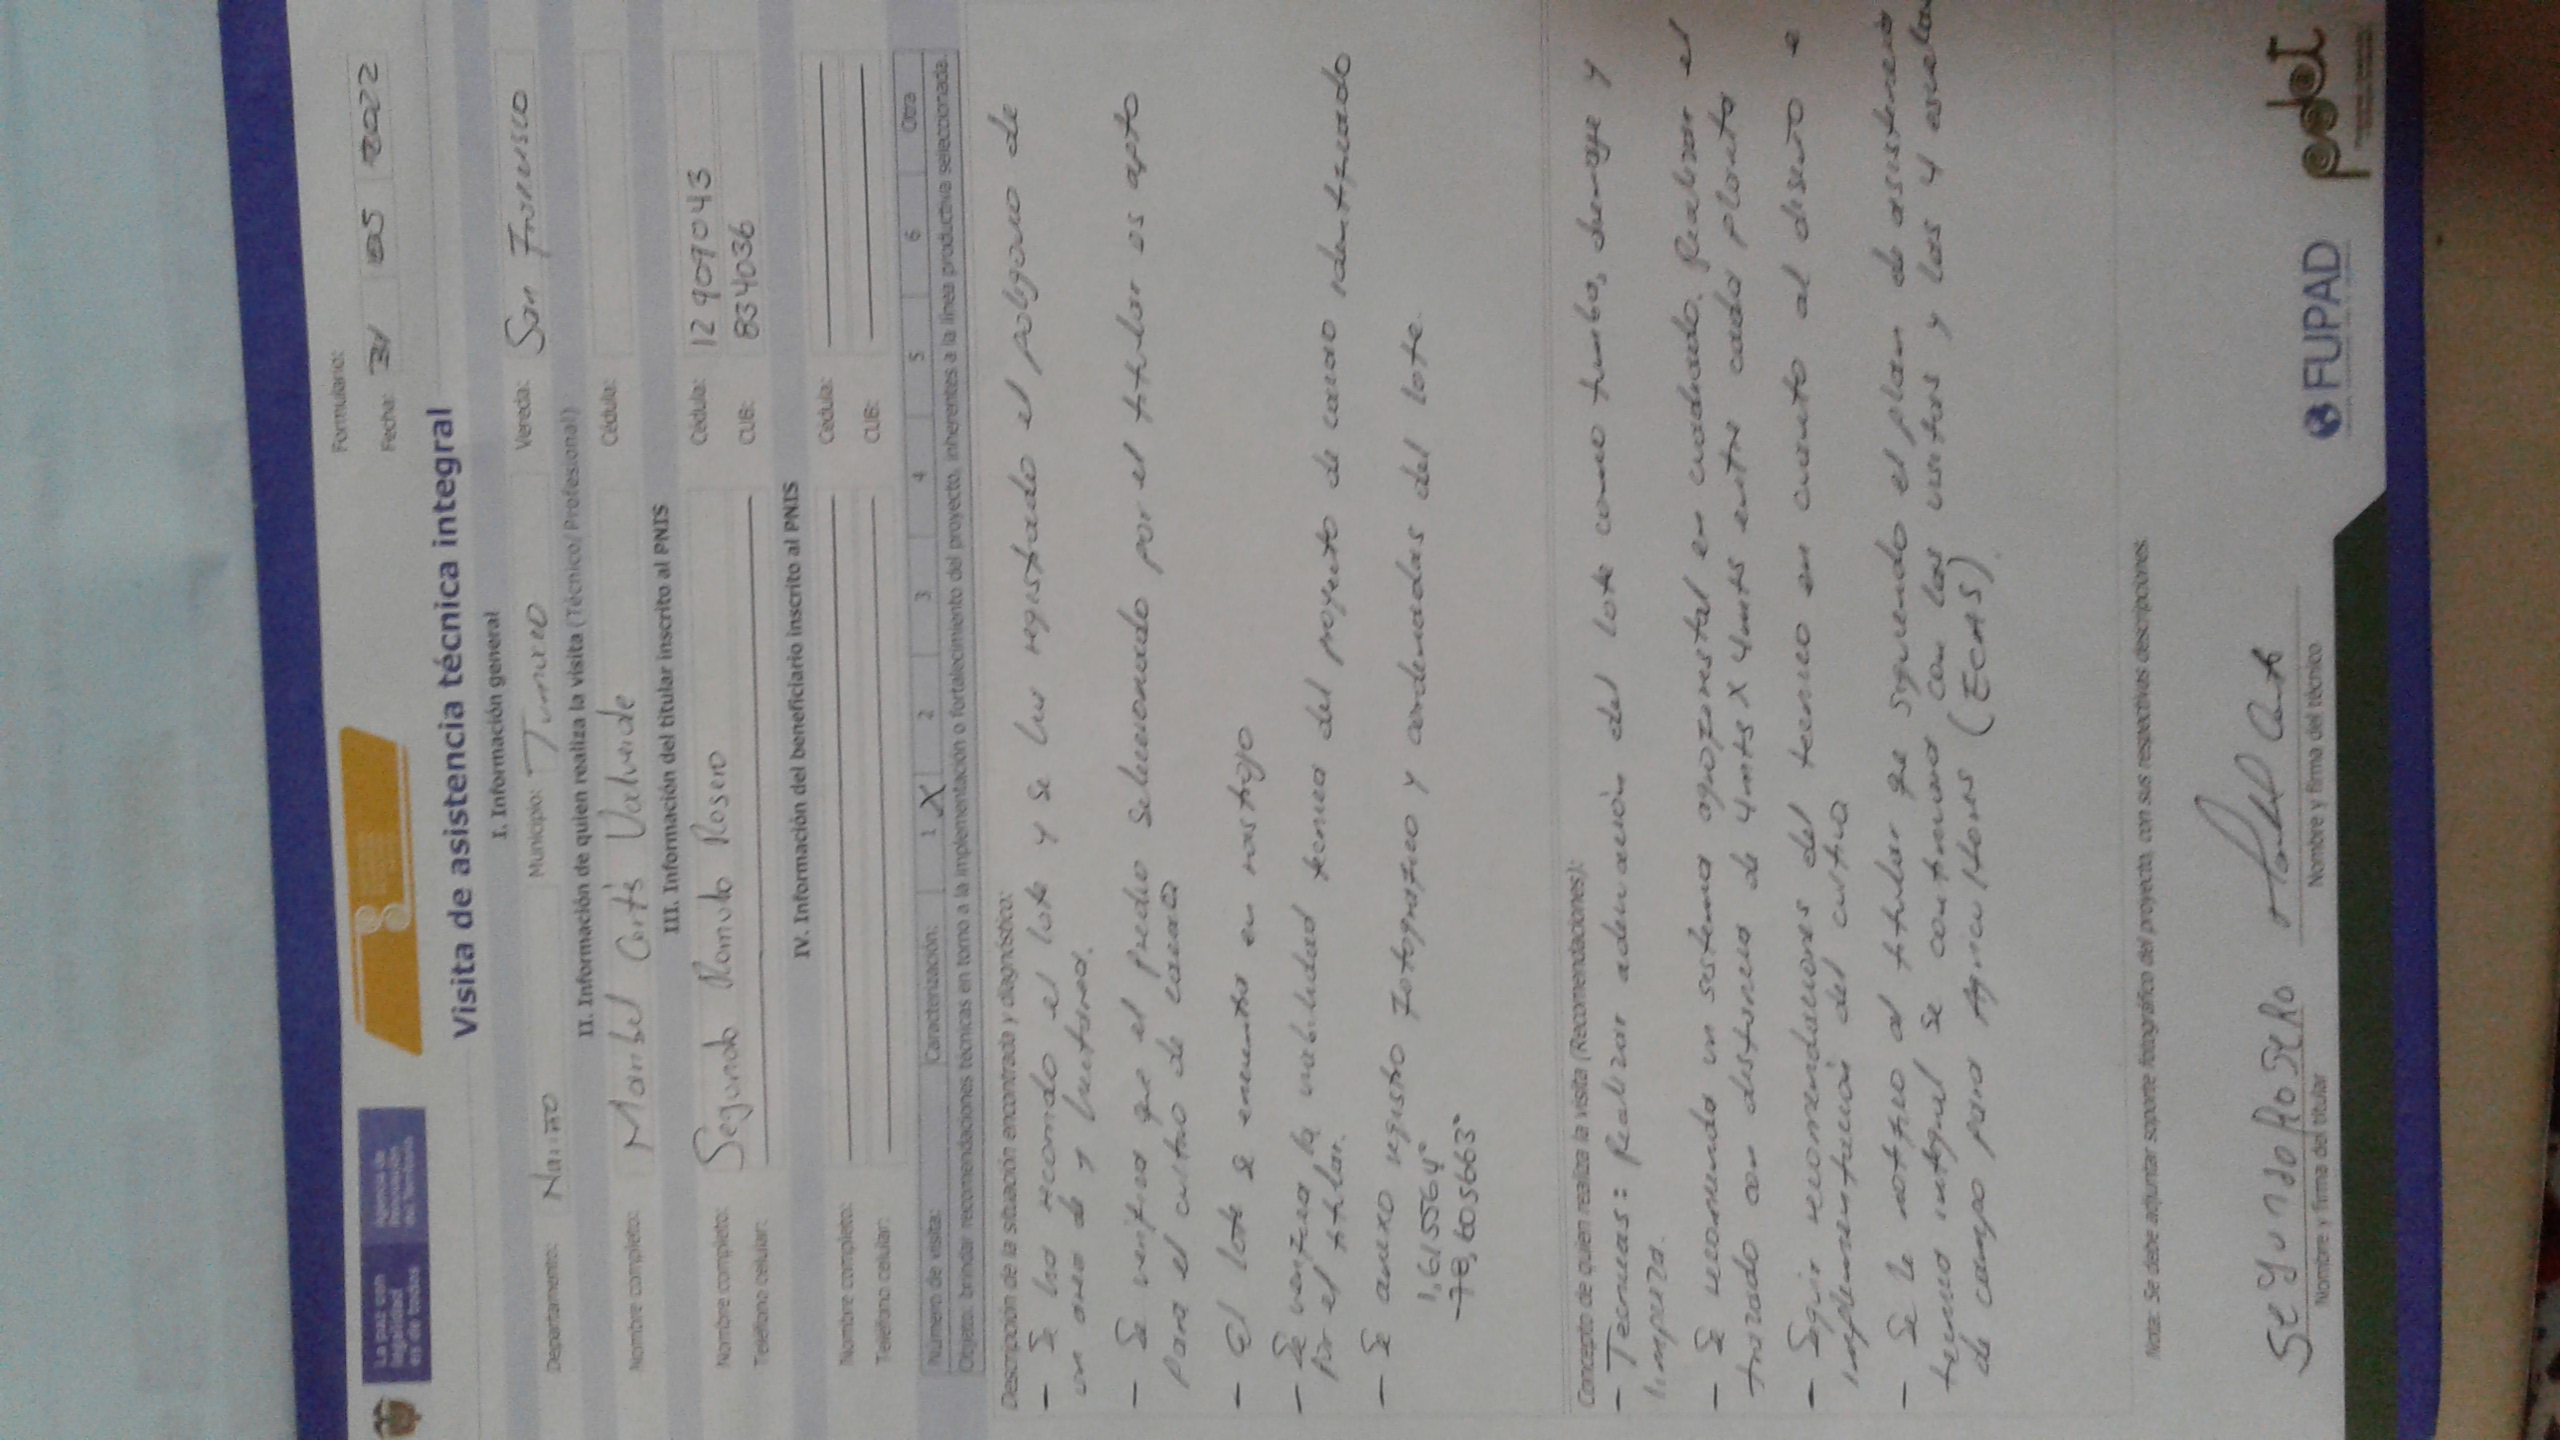 La paz con
legalidad
es de todos
Agencia de
Renovación
del Territorio
Formulario:
Fecha: 31 05 2022
Visita de asistencia técnica integral
I. Información general
Departamento: Nariño Municipio: Tumaco Vereda: San Francisco
II. Información de quien realiza la visita (Técnico/ Profesional))
Nombre completo: Maribel Cortés Valverde Cédula:
III. Información del titular inscrito al PNIS
Nombre completo: Segundo Romulo Rosero Cédula: 12909043
Teléfono celular: CUB: 834036
IV. Información del beneficiario inscrito al PNIS
Nombre completo: Cédula:
Teléfono celular: CUB:
Número de visita: Caracterización: 1 X 2 3 4 5 6 Otra
Objeto: brindar recomendaciones técnicas en torno a la implementación o fortalecimiento del proyecto, inherentes a la línea productiva seleccionada.
Descripción de la situación encontrada y diagnóstico:
- Se ha recorrido el lote y se ha registrado el poligono de
un area de 1 hectarea.
- Se verifica que el predio seleccionado por el titular es apto
para el cultivo de cacao
- El lote se encuentra en rastrojo
- Se verifica la viabilidad tecnica del proyecto de cacao identificado
por el titular.
- Se anexo registro fotografico y cordenadas del lote.
1,6155564°
-78,605663°
Concepto de quien realiza la visita (Recomendaciones):
- Tecnicas: Realizar adecuación del lote como tumba, drenaje y
limpieza.
- Se recomienda un sistema agroforestal en cuadrado. Realizar el
trazado con distancia de 4mts X 4mts entre cada planta
- Seguir recomendaciones del tecnico en cuanto al diseño e
implementación del cultivo
- Se le notifico al titular que siguiendo el plan de asistencia
tecnica integral se continuara con las visitas y las 4 escuelas
de campo para Agricultores (ECAS).
Nota: Se debe adjuntar soporte fotográfico del proyecto, con sus respectivas descripciones.
SeGundo RoSeRo
Nombre y firma del titular
Nombre y firma del técnico
FUPAD
pdet